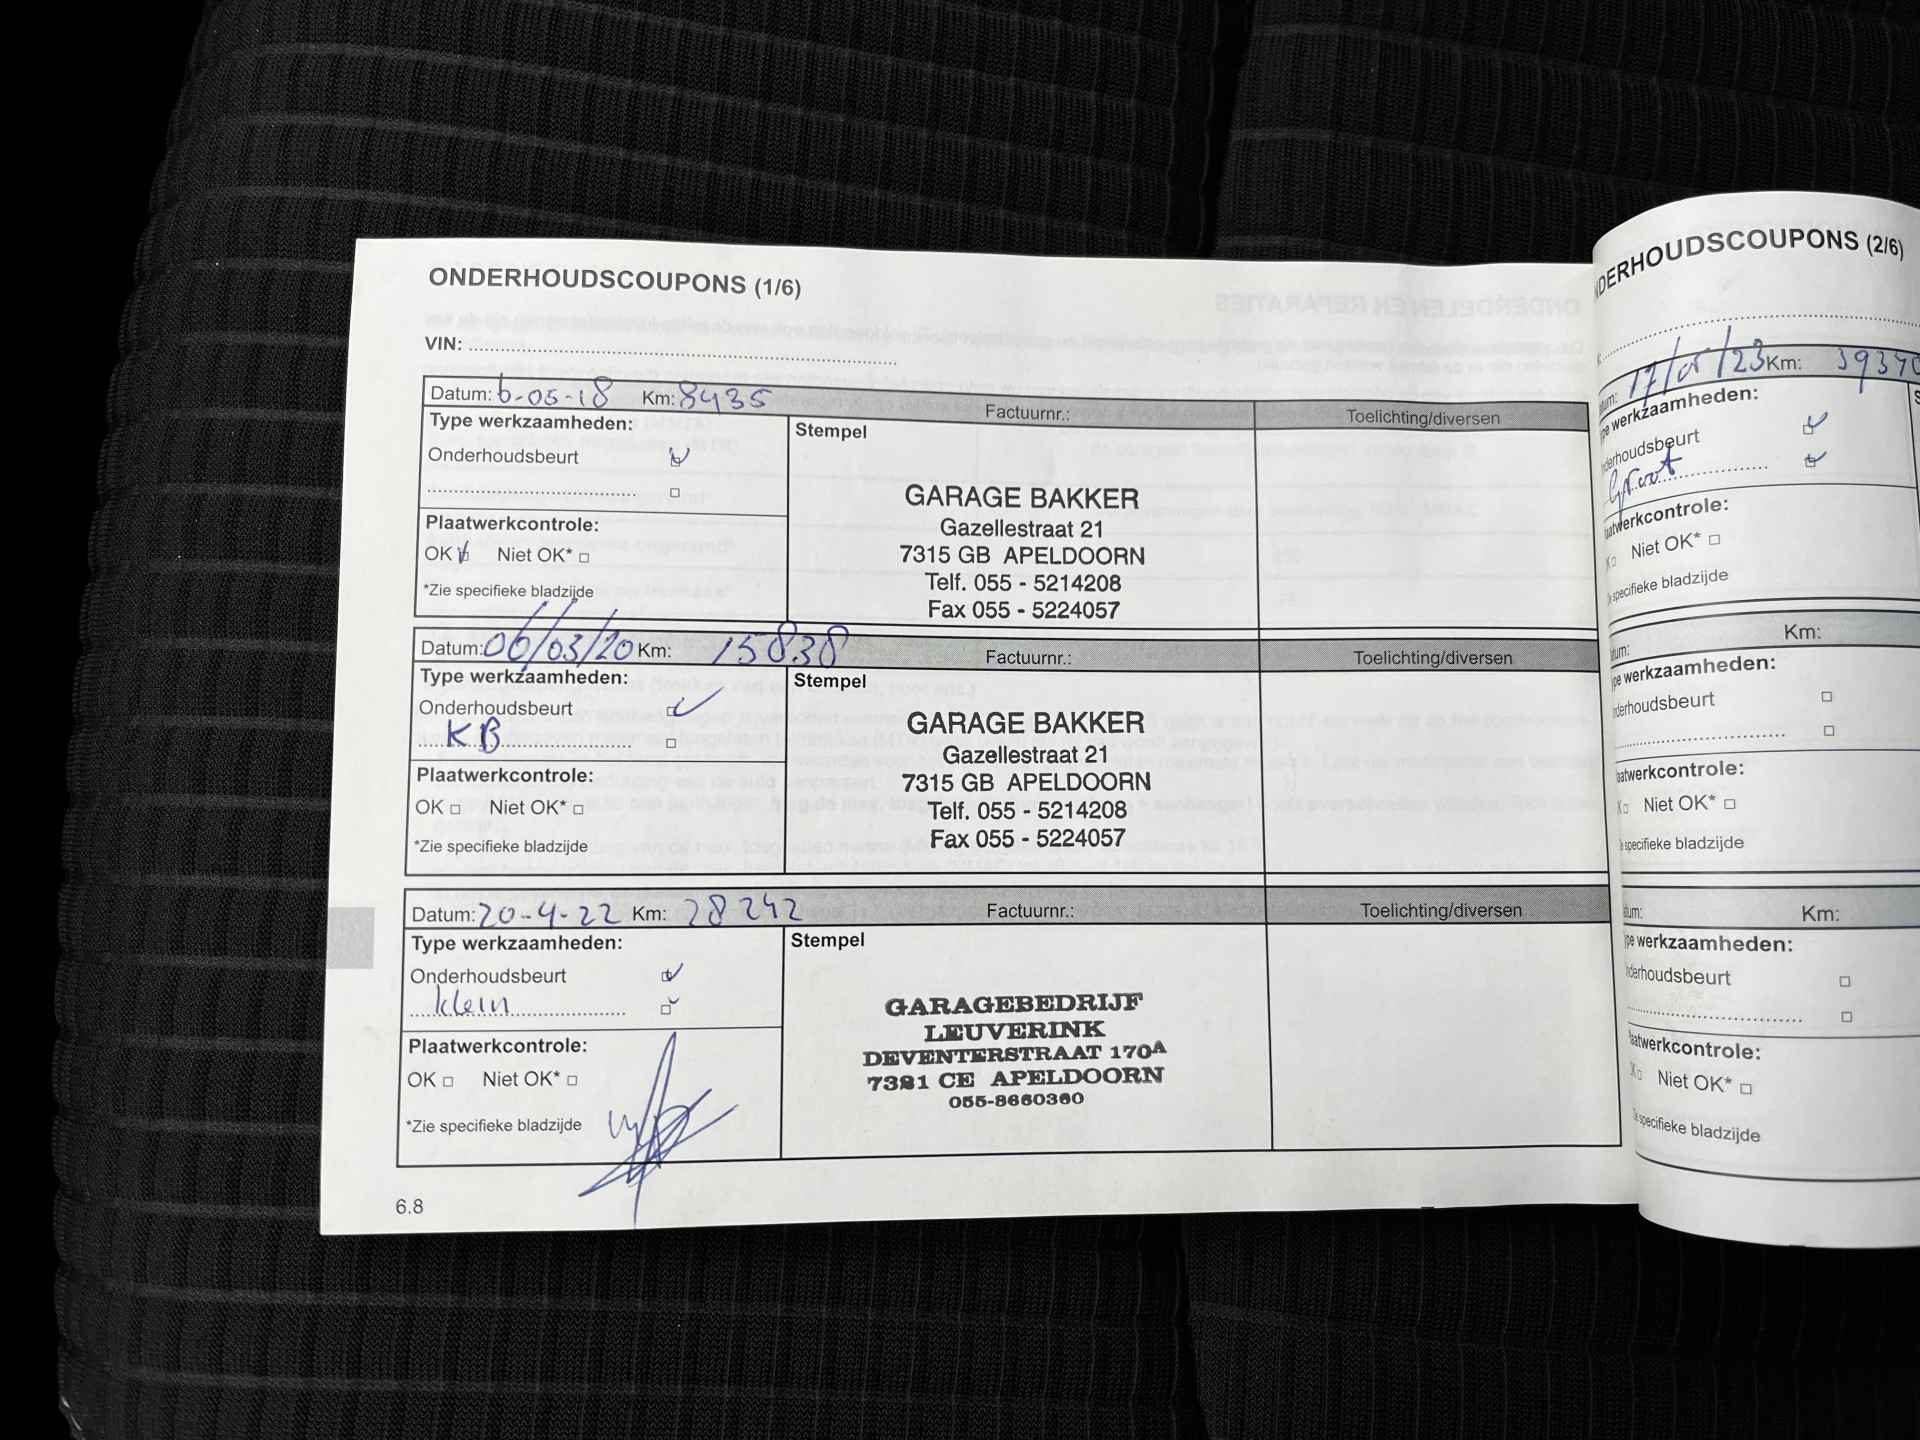 ONDERHOUDSCOUPONS (1/6)
VIN:
Datum: 6-03-18 Km: 8435 Factuurnr.: Toelichting/diversen
Type werkzaamheden:
Stempel
Onderhoudsbeurt
Plaatwerkcontrole:
OK Niet OK*
*Zie specifieke bladzijde
GARAGE BAKKER
Gazellestraat 21
7315 GB APELDOORN
Telf. 055 - 5214208
Fax 055 - 5224057
Datum: 06/03/20 Km: 15838 Factuurnr.: Toelichting/diversen
Type werkzaamheden:
Stempel
Onderhoudsbeurt
KB
Plaatwerkcontrole:
OK Niet OK*
*Zie specifieke bladzijde
GARAGE BAKKER
Gazellestraat 21
7315 GB APELDOORN
Telf. 055 - 5214208
Fax 055 - 5224057
Datum: 20-4-22 Km: 28242 Factuurnr.: Toelichting/diversen
Type werkzaamheden:
Stempel
Onderhoudsbeurt
klein
Plaatwerkcontrole:
OK Niet OK*
*Zie specifieke bladzijde
GARAGEBEDRIJF
LEUVERINK
DEVENTERSTRAAT 170A
7321 CE APELDOORN
055-3660360
6.8
NDERHOUDSCOUPONS (2/6)
tum: 17/05/23 Km: 39370
pe werkzaamheden:
nderhoudsbeurt
Groot
aatwerkcontrole:
K Niet OK*
specifieke bladzijde
tum: Km:
pe werkzaamheden:
nderhoudsbeurt
aatwerkcontrole:
K Niet OK*
specifieke bladzijde
tum: Km:
pe werkzaamheden:
nderhoudsbeurt
aatwerkcontrole:
K Niet OK*
specifieke bladzijde